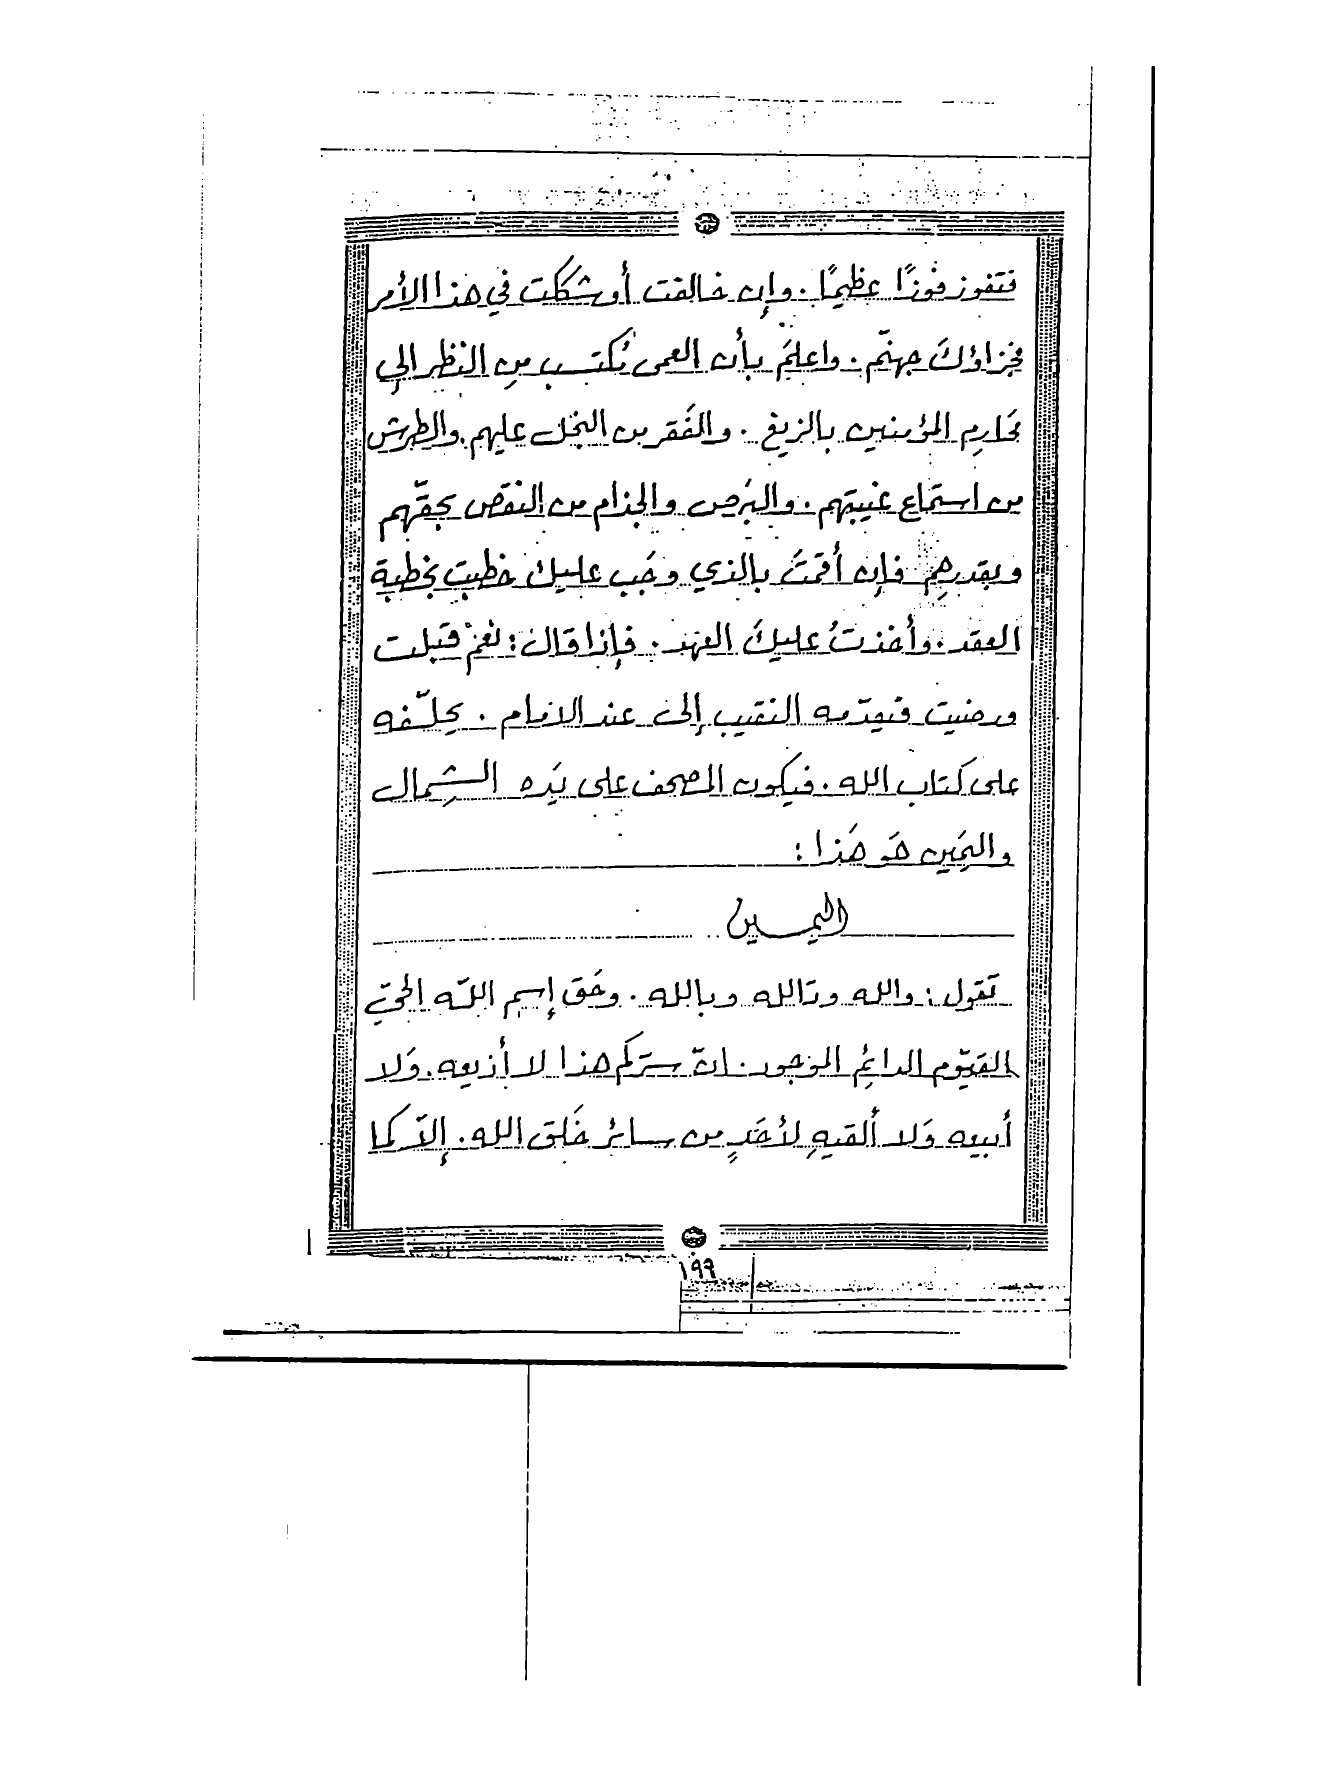 فتفوز فوزًا عظيمًا . وإن خالفت أو شككت في هذا الأمر
فجزاؤكَ جهنّم . واعلم بأن العمى يُكتسب من النظر إلى
محَارِم المؤمنين بالزيغ . والفَقر من البخل عليهم . والطرش
من استماع غيبتهم . والبَرص والجذام من النقص بحقّهم
وبقدرهِم فإن أقمتَ بالذي وجَب عليك خطبت بخطبة
العقد . وأخذتُ عليكَ العهد . فإذا قال : نعَمْ قبَلت
ورضيت فيقدّمه النقيب إلى عند الامام . يحلّفه
على كتاب الله . فيكون المصحف على يَده الشِمال
واليَمَين هَو هَذا :
اليمين
تَقول : والله وتَالله وبالله . وحَق إسم اللّه الحيّ
القيّوم الدائِم الموجود . انّ سرّكم هذا لا أذيعه . وَلا
أبيعه وَلا ألقيهِ لأحَدٍ من سائر خَلق الله . إلاّ كما
١٩٩